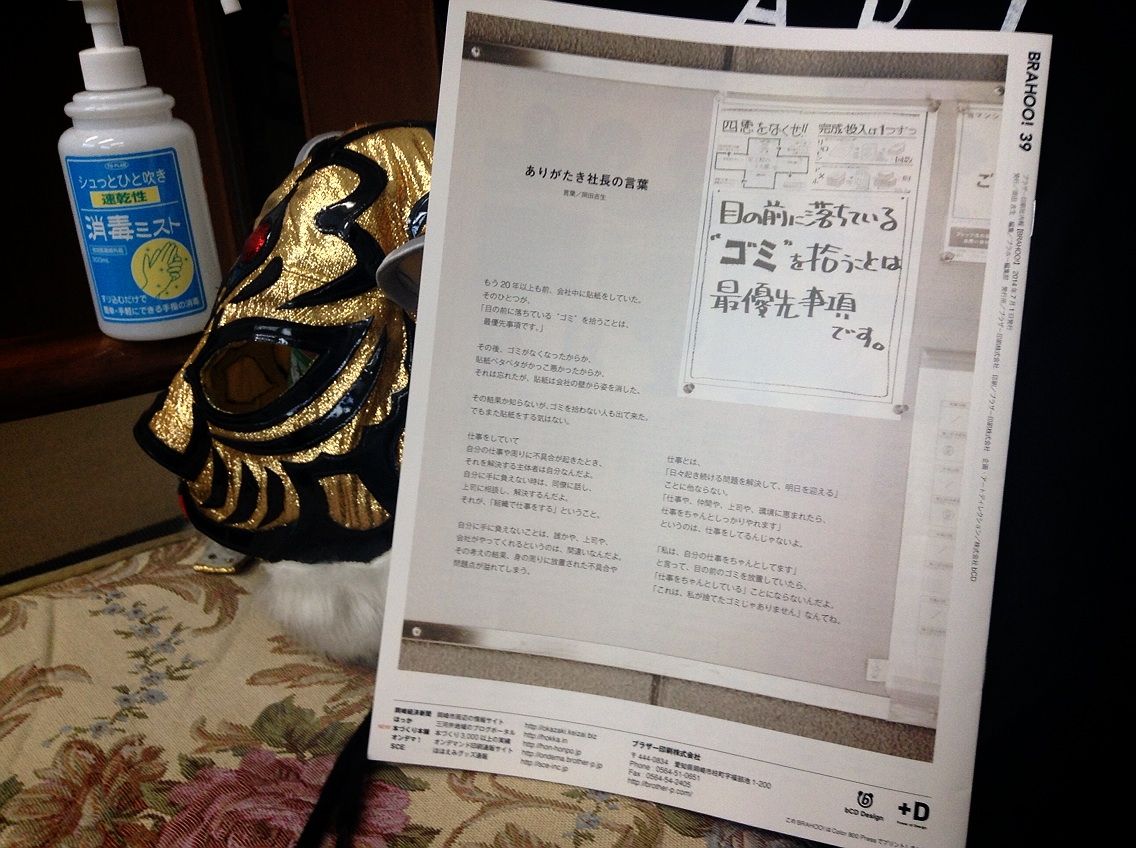 TO-PLAN
シュっとひと吹き
速乾性
消毒ミスト
300mL
すり込むだけで
簡単・手軽にできる手指の消毒
BRAHOO! 39
ありがたき社長の言葉
言葉／岡田吉生
もう20年以上も前、会社中に貼紙をしていた。
そのひとつが、
「目の前に落ちている“ゴミ”を拾うことは、
最優先事項です。」
その後、ゴミがなくなったからか、
貼紙ベタベタがかっこ悪かったからか、
それは忘れたが、貼紙は会社の壁から姿を消した。
その結果か知らないが、ゴミを拾わない人も出て来た。
でもまた貼紙をする気はない。
仕事をしていて
自分の仕事や周りに不具合が起きたとき、
それを解決する主体者は自分なんだよ。
自分に手に負えない時は、同僚に話し、
上司に相談し、解決するんだよ。
それが、「組織で仕事をする」ということ。
自分に手に負えないことは、誰かや、上司や、
会社がやってくれるというのは、間違いなんだよ。
その考えの結果、身の周りに放置された不具合や
問題点が溢れてしまう。
仕事とは、
「日々起き続ける問題を解決して、明日を迎える」
ことに他ならない。
「仕事や、仲間や、上司や、環境に恵まれたら、
仕事をちゃんとしっかりやれます」
というのは、仕事をしてるんじゃないよ。
「私は、自分の仕事をちゃんとしてます」
と言って、目の前のゴミを放置していたら、
「仕事をちゃんとしている」ことにならないんだよ。
「これは、私が捨てたゴミじゃありません」なんてね。
四悪をなくせ!! 完成・投入は1つずつ
目の前に落ちている
“ゴミ”を拾うことは
最優先事項
です。
岡崎経済新聞 岡崎市周辺の情報サイト http://okazaki.keizai.biz
ほっか 三河井地域のブログポータル http://hokka.in
本づくり本舗 本づくり3,000以上の実績 http://hon-honpo.jp
オンデマ！ オンデマンド印刷通販サイト http://ondema.brother-p.jp
SCE ほほえみグッズ通販 http://sce-inc.jp
ブラザー印刷株式会社
〒444-0834 愛知県岡崎市柱町字福部池1-200
Phone 0564-51-0651
Fax 0564-54-2405
http://brother-p.com/
bCD Design
+D
この BRAHOO! は Color 800 Press でプリントし